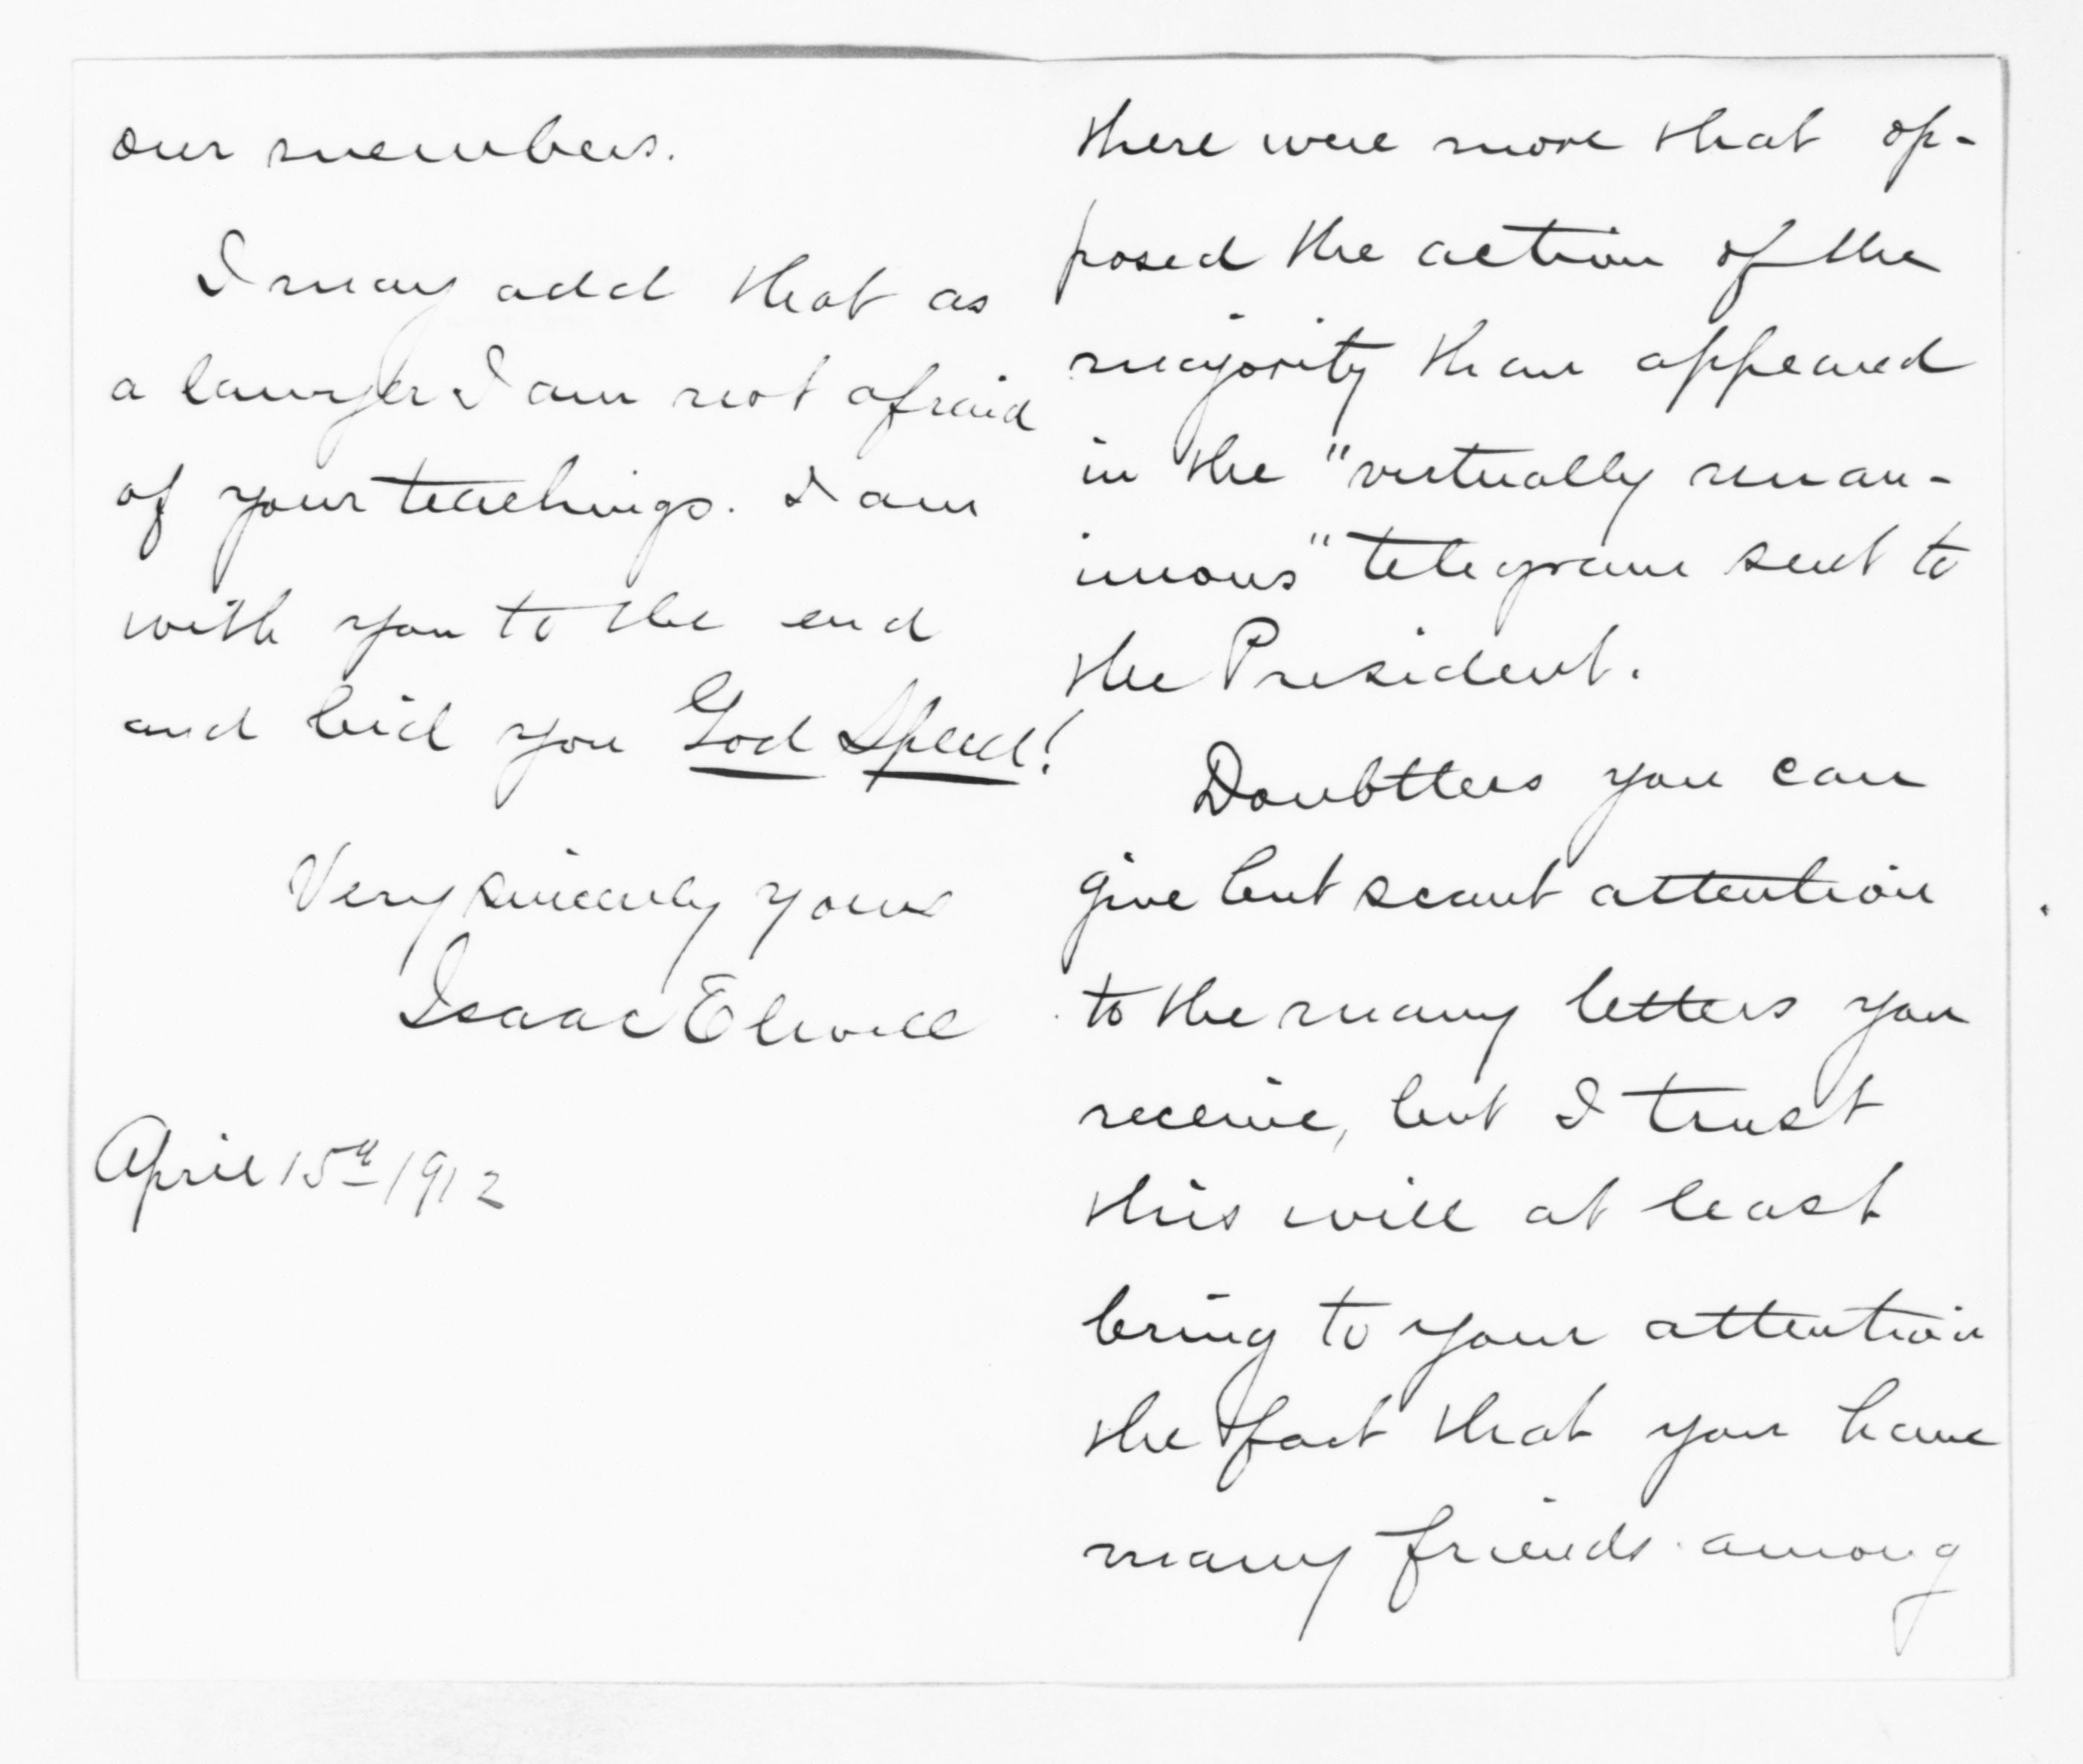 there were more that op-
posed the action of the
majority than appeared
in the "virtually unan-
imous" telegram sent to
the President.
Doubtless you can
give but scant attention
to the many letters you
receive, but I trust
this will at least
bring to your attention
the fact that you have
many friends among
our members.
I may add that as
a lawyer I am not afraid
of your teachings. I am
with you to the end
and bid you God Speed!
Very sincerely yours
Isaac Elwell
April 15th 1912